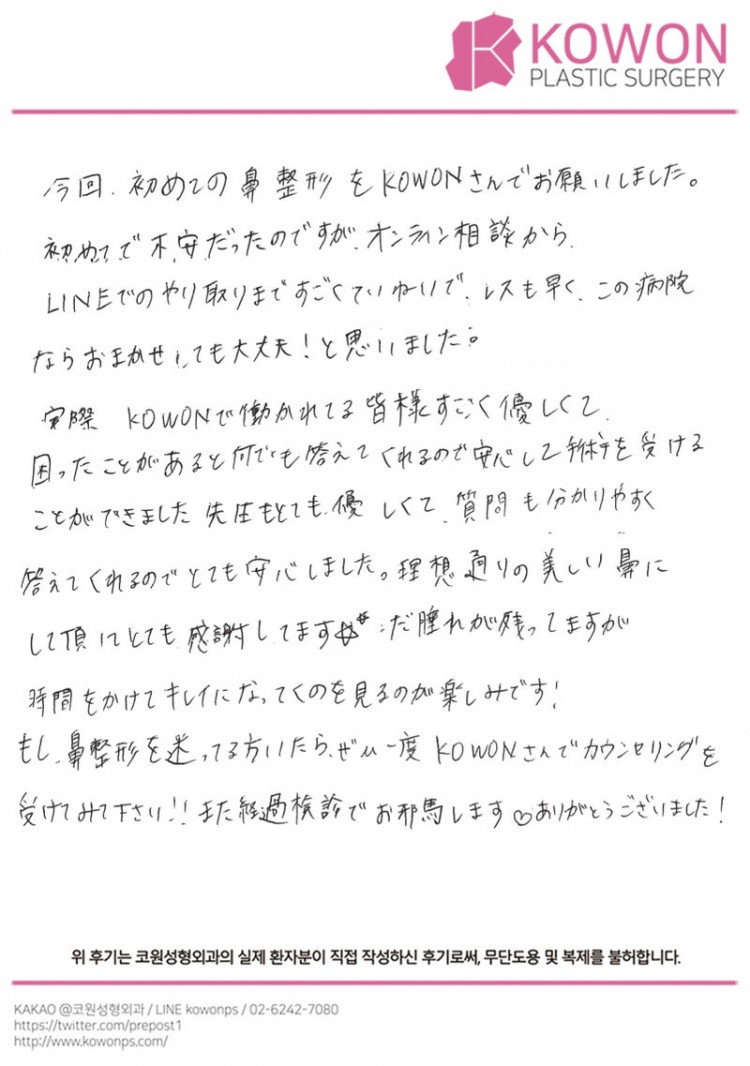 KOWON
PLASTIC SURGERY
今回、初めての鼻整形をKOWONさんでお願いしました。
初めてで不安だったのですが、オンライン相談から、
LINEでのやり取りまですごくていねいで、レスも早く、この病院
ならおまかせしても大丈夫！と思いました。
実際 KOWONで働かれてる皆様すごく優しくて、
困ったことがあると何でも答えてくれるので安心して手術を受ける
ことができました 先生もとても優しくて、質問も分かりやすく
答えてくれるのでとても安心しました。理想通りの美しい鼻に
して頂いてとても感謝してます だ腫れが残ってますが
時間をかけてキレイになってくのを見るのが楽しみです！
もし、鼻整形を迷ってる方いたら、ぜひ一度 KOWONさんでカウンセリングを
受けてみて下さい！！また経過検診でお邪魔します♡ありがとうございました！
위 후기는 코원성형외과의 실제 환자분이 직접 작성하신 후기로써, 무단도용 및 복제를 불허합니다.
KAKAO @코원성형외과 / LINE kowonps / 02-6242-7080
https://twitter.com/prepost1
http://www.kowonps.com/